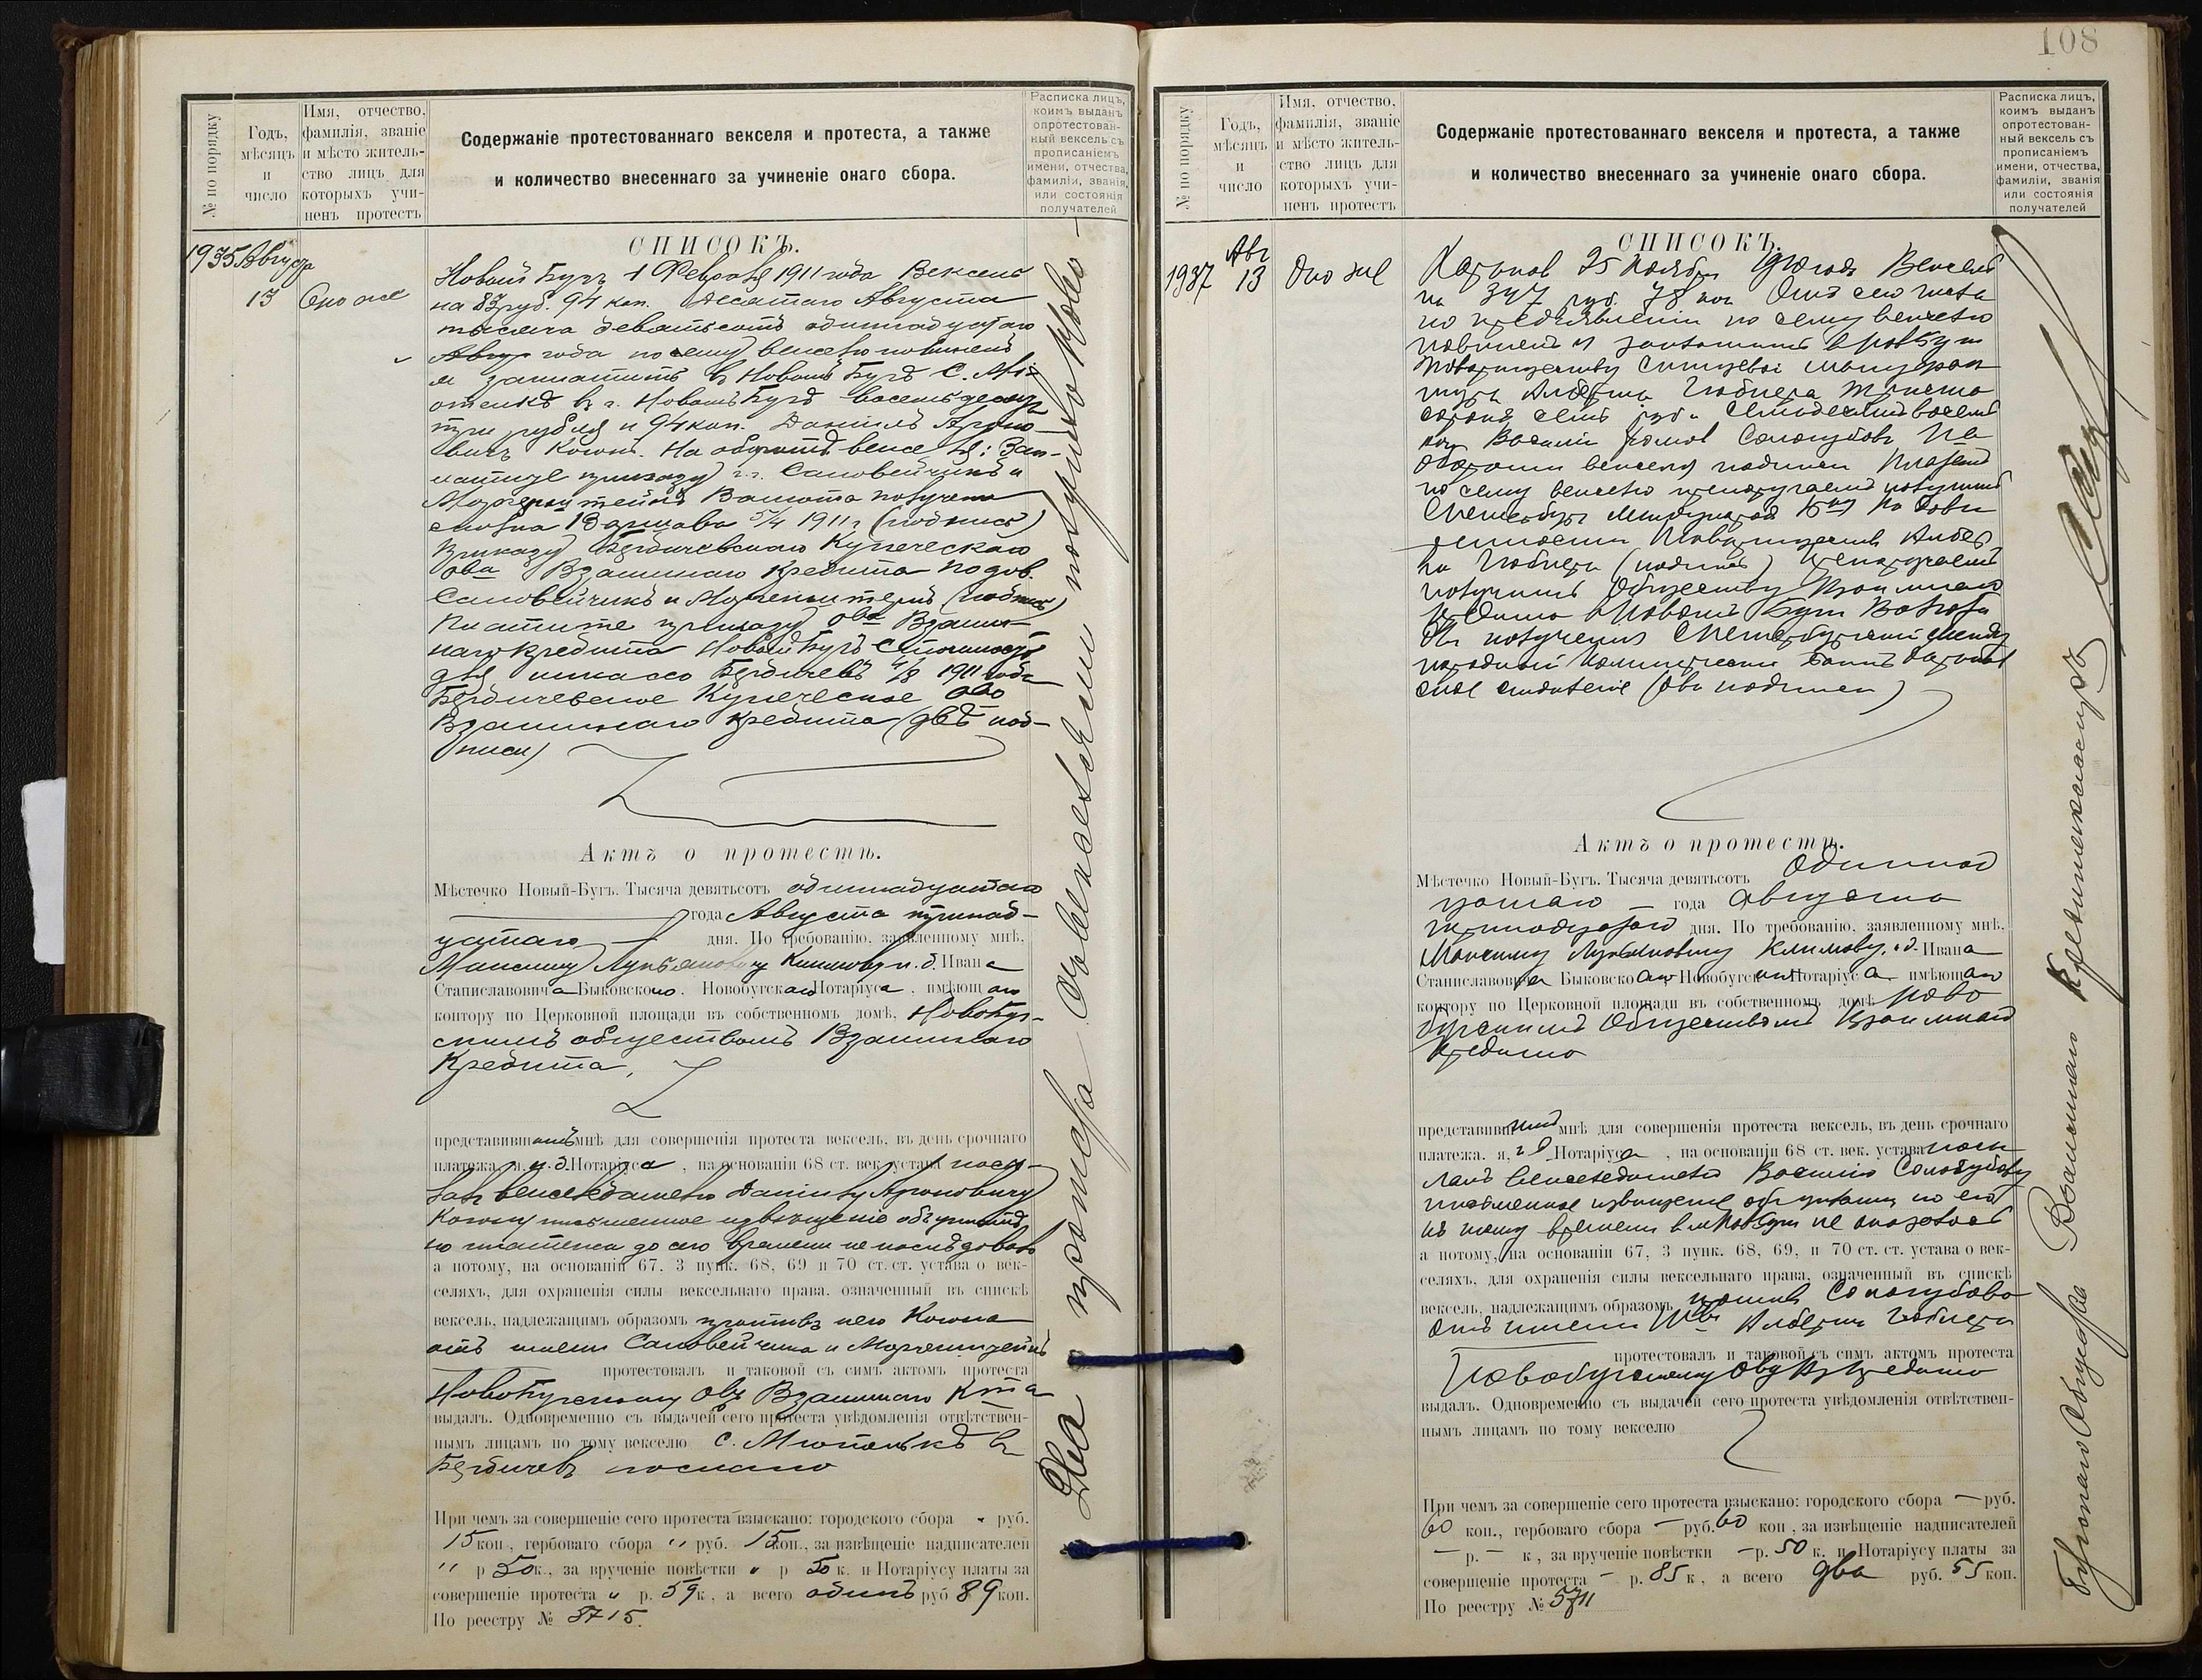 № по порядку
Годъ,
мѣсяцъ
и
число
Имя, отчество,
фамилія, званіе
и мѣсто житель-
ство лицъ для
которыхъ учи-
ненъ протестъ
Содержаніе протестованнаго векселя и протеста, а также
и количество внесеннаго за учиненіе онаго сбора.
Расписка лицъ,
коимъ выданъ
опротестован-
ный вексель съ
прописаніемъ
имени, отчества,
фамиліи, званія,
или состоянія
получателей
1935 Августа
13 Оно же
СПИСОКЪ.
Новый Бугъ 1 Февраля 1911 года Вексель
на 83 руб. 94 коп. Десятаго Августа
тысяча девятьсотъ одиннадцатаго
года по сему векселю повиненъ
я заплатить въ Новомъ Бугѣ С.
въ г. Новомъ Бугѣ восемьдесятъ
три рубля и 94 коп. Даніилъ Ароно-
вичъ Когонъ. На оборотѣ векселя: Зап-
латите приказу г.г. Саловейчикъ и
Моргенштейнъ Валюта получена
сполна Варшава 5/4 1911 г (подпись)
Приказу Бердичевскаго Купеческаго
Ова Взаимнаго Кредита по дов.
Саловейчикъ и Моргенштернъ (подпись)
Платите приказу Ова Взаим-
наго кредита Новый Бугъ Стоимость
для инкассо Бердичевъ 4/8 1911 года
Бердичевское Купеческое Ово
Взаимнаго Кредита (двѣ под-
писи)
Актъ о протестѣ.
Мѣстечко Новый-Бугъ. Тысяча девятьсотъ одиннадцатаго
года Августа тринад-
цатаго дня. По требованію, заявленному мнѣ,
Максиму Лукьяновичу Климову и.д. Ивана
Станиславовича Быковскаго, Новобугскаго Нотаріуса, имѣющаго
контору по Церковной площади въ собственномъ домѣ, Новобуг-
скимъ обществомъ Взаимнаго
Кредита,
представившимъ мнѣ для совершенія протеста вексель, въ день срочнаго
платежа, я, и.д. Нотаріуса, на основаніи 68 ст. век. устава посы-
лалъ векселедателю Даніилу Ароновичу
Когону письменное извѣщеніе объ уплатѣ
но платежа до сего времени не послѣдовало
а потому, на основаніи 67, 3 пунк. 68, 69 и 70 ст. ст. устава о век-
селяхъ, для охраненія силы вексельнаго права, означенный въ спискѣ
вексель, надлежащимъ образомъ противъ него Когона
отъ имени Саловейчика и Моргенштейнъ
протестовалъ и таковой съ симъ актомъ протеста
Новобугскому Ову Взаимнаго Кта
выдалъ. Одновременно съ выдачей сего протеста увѣдомленія отвѣтствен-
нымъ лицамъ по тому векселю С. въ
Бердичевъ послано
При чемъ за совершеніе сего протеста взыскано: городского сбора " руб.
15 коп., гербоваго сбора " руб. 15 коп., за извѣщеніе надписателей
" р 50 к., за врученіе повѣстки " р 50 к. и Нотаріусу платы за
совершеніе протеста " р. 59 к, а всего одинъ руб 89 коп.
По реестру № 5715.
Два протеста съ векселями получило Ново-
108
№ по порядку
Годъ,
мѣсяцъ
и
число
Имя, отчество,
фамилія, званіе
и мѣсто житель-
ство лицъ для
которыхъ учи-
ненъ протестъ
Содержаніе протестованнаго векселя и протеста, а также
и количество внесеннаго за учиненіе онаго сбора.
Расписка лицъ,
коимъ выданъ
опротестован-
ный вексель съ
прописаніемъ
имени, отчества,
фамиліи, званія
или состоянія
получателей
Авг
1937 13 Оно же
СПИСОКЪ.
Харьков 25 Ноября 1910 года Вексель
на 347 руб. 78 коп Отъ сего числа
по предъявленіи по сему векселю
повиненъ я заплатить в Нов Буг
Товариществу Ситцевой мануфак
туры Альберта Гюбнера Триста
сорокъ семь руб и семьдесятъ восемь
коп Василій Сологубовъ На
оборотѣ векселя надписи Платежъ
по сему векселю препоручаемъ получить
Спетербург Международ Бку По довѣ
ренности Товарищества Альбер
та Гюбнера (подпись) препоручаемъ
получить Обществу Взаимнаго
Кредита в Новомъ Буге Валюта
для полученія СПетербургскій Между
народный Коммерческій банкъ Харьков
ское отдѣленіе (два подписи)
Актъ о протестѣ.
Мѣстечко Новый-Бугъ. Тысяча девятьсотъ одиннад
цатаго года Августа
тринадцатаго дня. По требованію, заявленному мнѣ,
Максиму Лукьяновичу Климову, и.д. Ивана
Станиславовича Быковскаго Новобугскаго Нотаріуса, имѣющаго
контору по Церковной площади въ собственномъ домѣ, Ново
бугскимъ Обществомъ Взаимнаго
Кредита
представившимъ мнѣ для совершенія протеста вексель, въ день срочнаго
платежа, я, и д Нотаріуса, на основаніи 68 ст. век. устава посы
лалъ векселедателю Василію Сологубову
письменное извѣщеніе объ уплатѣ но его
къ тому времени в м Нов Буге не оказалось
а потому, на основаніи 67, 3 пунк. 68, 69, и 70 ст. ст. устава о век-
селяхъ, для охраненія силы вексельнаго права, означенный въ спискѣ
вексель, надлежащимъ образомъ против Сологубова
отъ имени Тва Альберта Гюбнера
протестовалъ и таковой съ симъ актомъ протеста
Новобугскому Ову Вз Кредита
выдалъ. Одновременно съ выдачей сего протеста увѣдомленія отвѣтствен-
нымъ лицамъ по тому векселю
При чемъ за совершеніе сего протеста взыскано: городского сбора — руб.
60 коп., гербоваго сбора — руб. 60 коп, за извѣщеніе надписателей
— р. — к, за врученіе повѣстки — р. 50 к. и Нотаріусу платы за
совершеніе протеста — р. 85 к, а всего два руб. 55 коп.
По реестру № 5711
Бугское Общество Взаимнаго Кредита